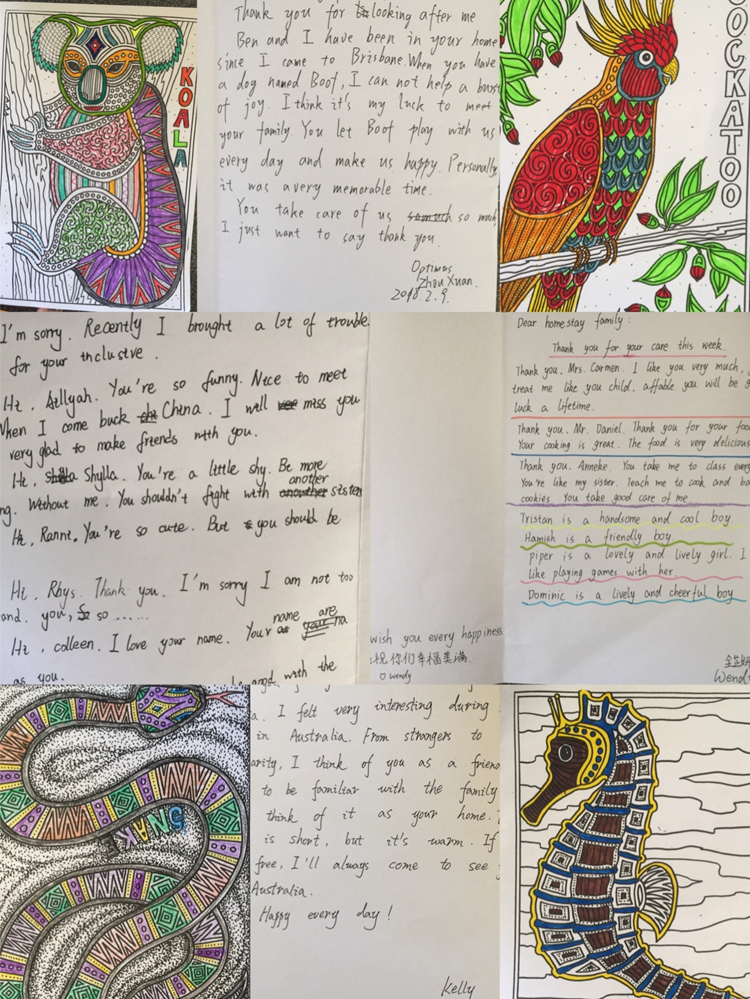 KOALA
Thank you for looking after me
Ben and I have been in your home
since I came to Brisbane. When you have
a dog named Boof, I can not help a burst
of joy. I think it's my luck to meet
your family. You let Boof play with us
every day and make us happy. Personally
it was a very memorable time.
You take care of us so much so much
I just want to say thank you.
Optimus
Zhou Xuan.
2018.2.9.
OCKATOO
I'm sorry. Recently I brought a lot of trouble
for your inclustve.
Hi, Aillyah. You're so funny. Nice to meet
When I come buck China. I will miss you
very glad to make friends with you.
Hi, Shylla. You're a little shy. Be more
ng. Without me. You shouldn't fight with another sister
Hi, Ranni. You're so cute. But you should be
Hi, Rhys. Thank you. I'm sorry I am not too
and. you, so ......
Hi, colleen. I love your name. Your name are
as you.
angel with the
wish you every happiness
祝你们幸福美满.
♡ wendy
Dear homestay family:
Thank you for your care this week.
Thank you, Mrs. Carmen. I like you very much,
treat me like you child, affable you will be
luck a lifetime.
Thank you. Mr. Daniel. Thank you for your foo
Your cooking is great. The food is very delicious
Thank you, Anneke. You take me to class every
You're like my sister. Teach me to cook and ba
cookies. You take good care of me
Tristan is a handsome and cool boy.
Hamish is a friendly boy
piper is a lovely and lively girl. I
like playing games with her
Dominic is a lively and cheerful boy
Wendy
SNAK
a. I felt very interesting during
in Australia. From strangers to
arity, I think of you as a friend
to be familiar with the family
think of it as your home.
is short, but it's warm. If
free, I'll always come to see
Australia.
Happy every day!
Kelly